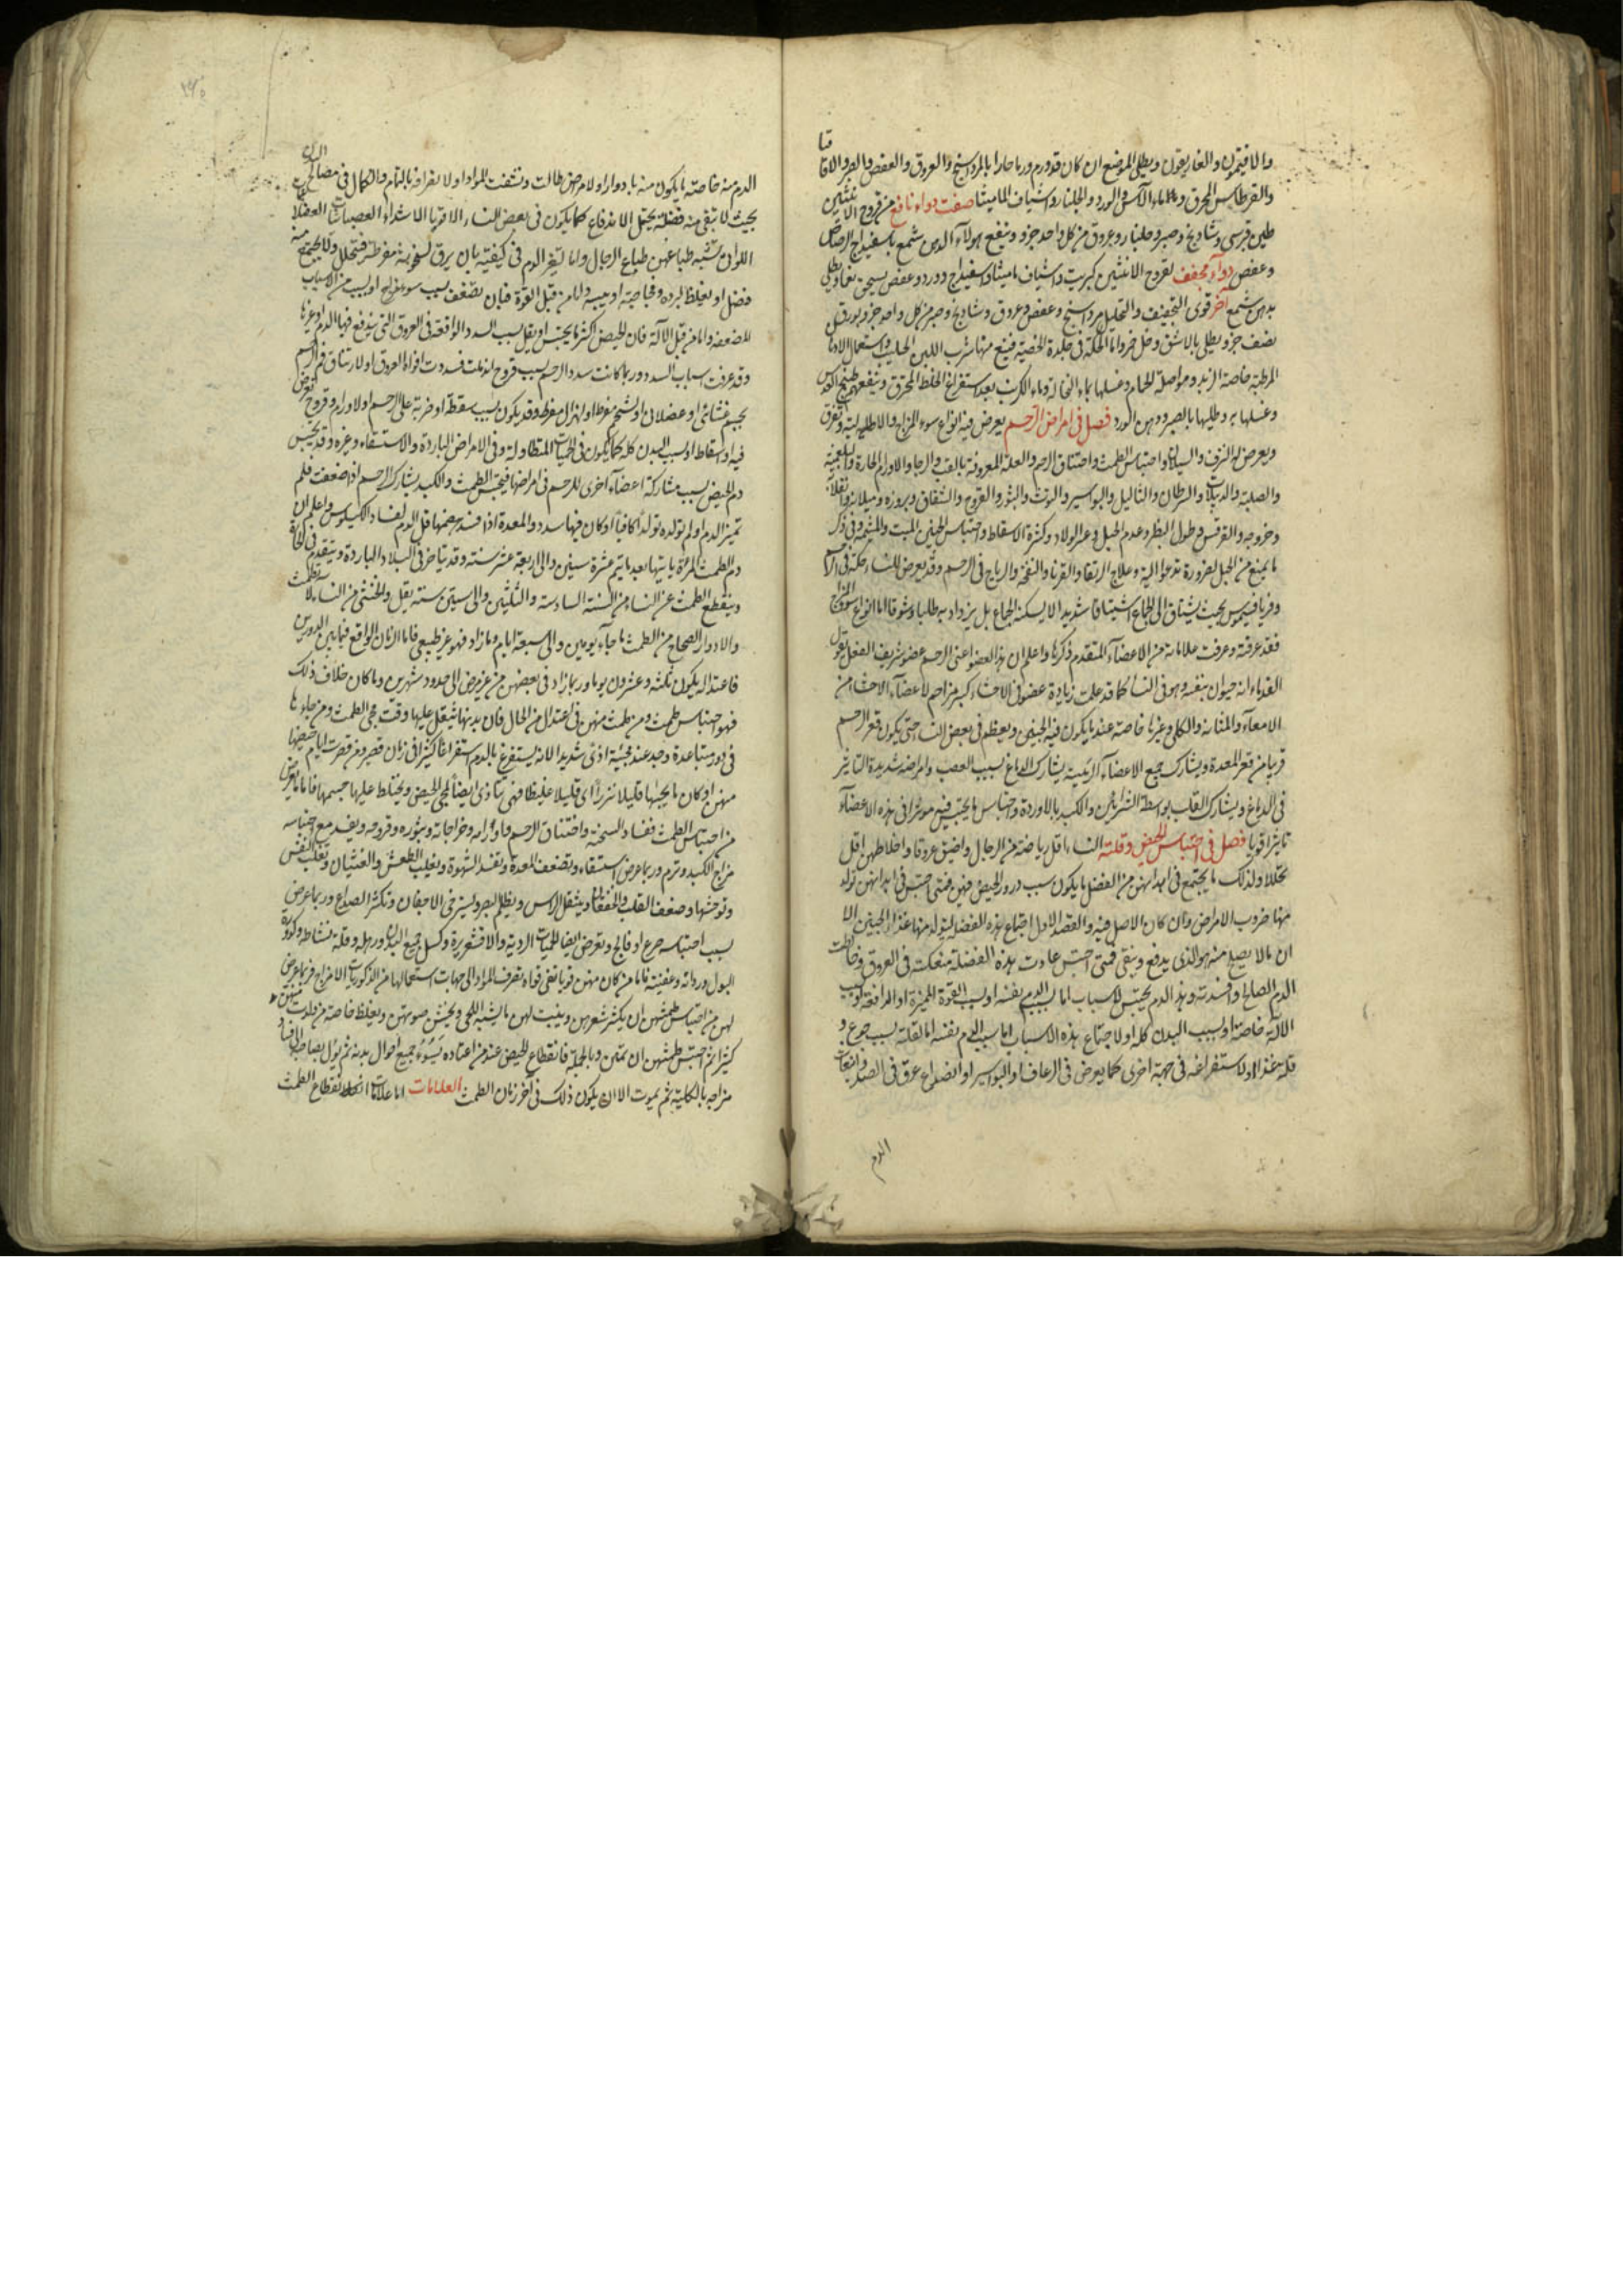 والافيتمون والغاريقون ويطلى الموضع ان كان قد ورم ورما حارا بالمرداسنج والعروق والعفص والصبر والاقاقيا
والقرطاس المحرق وبماء الآس والورد والجلنار واشياف الماميثا صفت دواء نافع من قروح الانثيين
طين قبرسي وشادنج وصبر وجلنار وعروق من كل واحد جزو وينفع هولاء الدهن شمع باسفيداج الرصاص
وعفص دواء مجفف لقروح الانثيين كبريت واشياف ماميثا واسفيداج وورد وعفص يسحق نعما ويطلى
بدهن شمع آخر قوي التجفيف والتحليل مرداسنج وعفص وعروق وشادنج وصبر من كل واحد جزو بورق
نصف جزو يطلى بالاشق وخل خمر واما الحكة في جلدة الخصية فينفع منها شرب اللبن الحليب واستعمال الادهان
المرطبة خاصة الزبد ومواصلة الحمام وغسلها بماء النخالة وماء الكرنب بعد استفراغ الخلط المحرق وينفعهم طبيخ العدس
وغسلها به وطليها بالصبر ودهن الورد فصل في امراض الرحم يعرض فيه انواع سوء المزاج والامراض الالية وتفرق
ويعرض له النزف والسيلان واحتباس الطمث واختناق الرحم والعلة المعروفة بالرجا والاورام الحارة والبلغمية
والصلبة والدبيلات والسرطان والثاليل والبواسير والتوث والبثور والقروح والشقاق وبروزه وميلانه وانقلابه
وخروجه والقرنس وطول البظر وعدم الحبل وعسر الولاد وكثرة الاسقاط واحتباس الجنين الميت والمشيمة وفي ذكر
ما يمنع من الحبل لضرورة تدعوا اليه وعلاج الرتقا والقرنا والنفخة والرياح في الرحم وقد يعرض للنساء حكة في الرحم
وفريافيسموس بحيث يشتاق الى الجماع اشتياقا شديدا لا يسكنه الجماع بل يزداد به طلبا وشوقا اما انواع سوء المزاج
فقد عرفته وعرفت علاماته من الاعضاء المتقدم ذكرها واعلم ان هذا العضو اعني الرحم عضو شريف الفعل تقول
القدماء انه حيوان بنفسه وهو في النساء كما قد علمت زيادة عضو في الاحشاء كبير مزاحم لاعضاء الاحشاء من
الامعاء والمثانة والكلى وغيرها خاصة عند ما يكون فيه الجنين ويعظم في بعض النساء حتى يكون قعر الرحم
قريبا من قعر المعدة ويشارك جميع الاعضاء الرئيسة يشارك الدماغ بسبب العصب وامراضه شديدة التاثير
في الدماغ ويشارك القلب بواسطة الشرايين والكبد بالاوردة واحتباس ما يحتبس فيه موثرا في هذه الاعضاء
تاثيرا قويا فصل في احتباس الحيض وقلته النساء اقل رياضة من الرجال واضيق عروقا واخلاطهن اقل
تحللا ولذلك ما يجتمع في ابدانهن من الفضل ما يكون سبب درور الحيض فيهن فمتى احتبس في ابدانهن تولد
منها ضروب الامراض وان كان الاصل فيه والقصد الاول اجتماع هذه الفضلة ليتولد منها غذاء الجنين الا
ان ما لا يصلح منه هو الذي يدفع وينقى فمتى احتبس عادت هذه الفضلة منعكسة في العروق وخالطت
الدم الصالح وافسدته وهذا الدم يحتبس لاسباب اما بسبب الدم نفسه او بسبب القوة المميزة او الدافعة او بسبب
الالة خاصة او بسبب البدن كله او لاجتماع هذه الاسباب اما سبب الدم نفسه اما لقلته بسبب جوع و
قلة غذا او لاستفراغه في جهة اخرى كما يعرض في الرعاف والبواسير او انصداع عرق في الصدر وانبعاث
الدم
الدم منه خاصة ما يكون منه بادوار او لامراض طالت ونشفت المواد او لانصرافه بالتمام والكمال في مصالح البدن
بحيث لا تبقى منه فضلة يحتمل الاندفاع كما يكون في بعض النساء الاقويا الاشداء العصبيات العضلات
اللواتي تشبه طباعهن طباع الرجال واما لتغير الدم في كيفيته بان يرق لسخونة مفرطة فتتحلل ولا يجتمع منه
فضل او يغلظ لبرده وفجاجته او يبسه واما من قبل القوة فبان تضعف بسبب سوء مزاج او لسبب من الاسباب
المضعفة واما من قبل الآلة فان الحيض اكثر ما يحتبس او يقل بسبب السدد الواقعة في العروق التي يندفع فيها الدم او غيرها
وقد عرفت اسباب السدد وربما كانت سدد الرحم بسبب قروح اندملت فسددت افواه العروق او لارتتاق فم الرحم
بجسم غشائي او عضلاني او لشحم مفرط او لهزال مفرط وقد يكون بسبب سقطة او ضربة على الرحم او لاورام وقروح تعرض
فيه او اسقاط او بسبب البدن كله كما يكون في الحميات المتطاولة وفي الامراض الباردة والاستسقاء وغيره وقد يحتبس
دم الحيض بسبب مشاركة اعضاء اخرى للرحم في امراضها فيحتبس الطمث والكبد يشارك الرحم اذا ضعفت فلم
تميز الدم او لم تولده تولدا كافيا او كان فيها سدد والمعدة اذا فسد هضمها قل الدم لفساد الكيلوس واعلم ان
دم الطمث المراة ياتيها بعد ما يتم عشرة سنين والى اربعة عشر سنة وقد يتاخر في البلاد الباردة ويتقدم في الحارة
وينقطع الطمث عن النساء من السنة السادسة والثلثين والى ستين سنة يقل والخنثى من النساء لا تطمث
والادوار الصحاح من الطمث ما جاء يومين والى سبعة ايام وما زاد فهو غير طبيعي فاما الزمان الواقع فيما بين الدورين
فاعتداله يكون ثلثة وعشرون يوما وربما زاد في بعضهن من غير مرض الى حدود شهرين وما كان خلاف ذلك
فهو احتباس طمث ومن طمث منهن في اعتدال من الحال فان بدنها يثقل عليها وقت مجي الطمث ومن جاءها
في دور متباعدة وجد عند مجيئه اذى شديدا لانه يستفرغ بالدم استفراغا كثيرا في زمان قصير ومن قصرت ايام حيضها
منهن او كان ما يجيها قليلا نزرا اي قليلا غليظا فهي تتاذى ايضا لمجي الحيض ويختلط عليها جسمها فاما ما يعرض
من احتباس الطمث ففساد السحنة واختناق الرحم واورامه وخراجاته وبثوره وقروحه ويفسد مع احتباسه
مزاج الكبد وترم وربما عرض استسقاء وتضعف المعدة وتفسد الشهوة ويغلب العطش والغثيان وتقلب النفس
وتوحشها وضعف القلب والخفقان ويثقل الراس ويظلم البصر وليسترخي الاجفان وتكثر الصداع وربما عرض
بسبب احتباسه صرع او فالج وتعرض ايضا الحميات الردية والاقشعريرة وكسل جميع البدن ورهله وقلة نشاطه وكدورة
البول ورداته وعفنيته فاما من كان منهن قويا تفي قواه تصرف المواد الى جهات استحالتها من الذكوريات الامزاج فربما عرض
لهن من احتباس طمثهن ان يكثر شعرهن وينبت لهن ما يشبه اللحى ويخشن صوتهن ويغلظ خاصة من ولدت منهن
كثيرا ثم احتبس طمثهن ان يمتن وبالجملة فانقطاع الحيض عند من اعتاده يسوء جميع احوال بدنه ثم يؤل بصاحبه الى فساد
مزاجه بالكلية ثم يموت الا ان يكون ذلك في آخر زمان الطمث العلامات اما علامات انقطاع الطمث